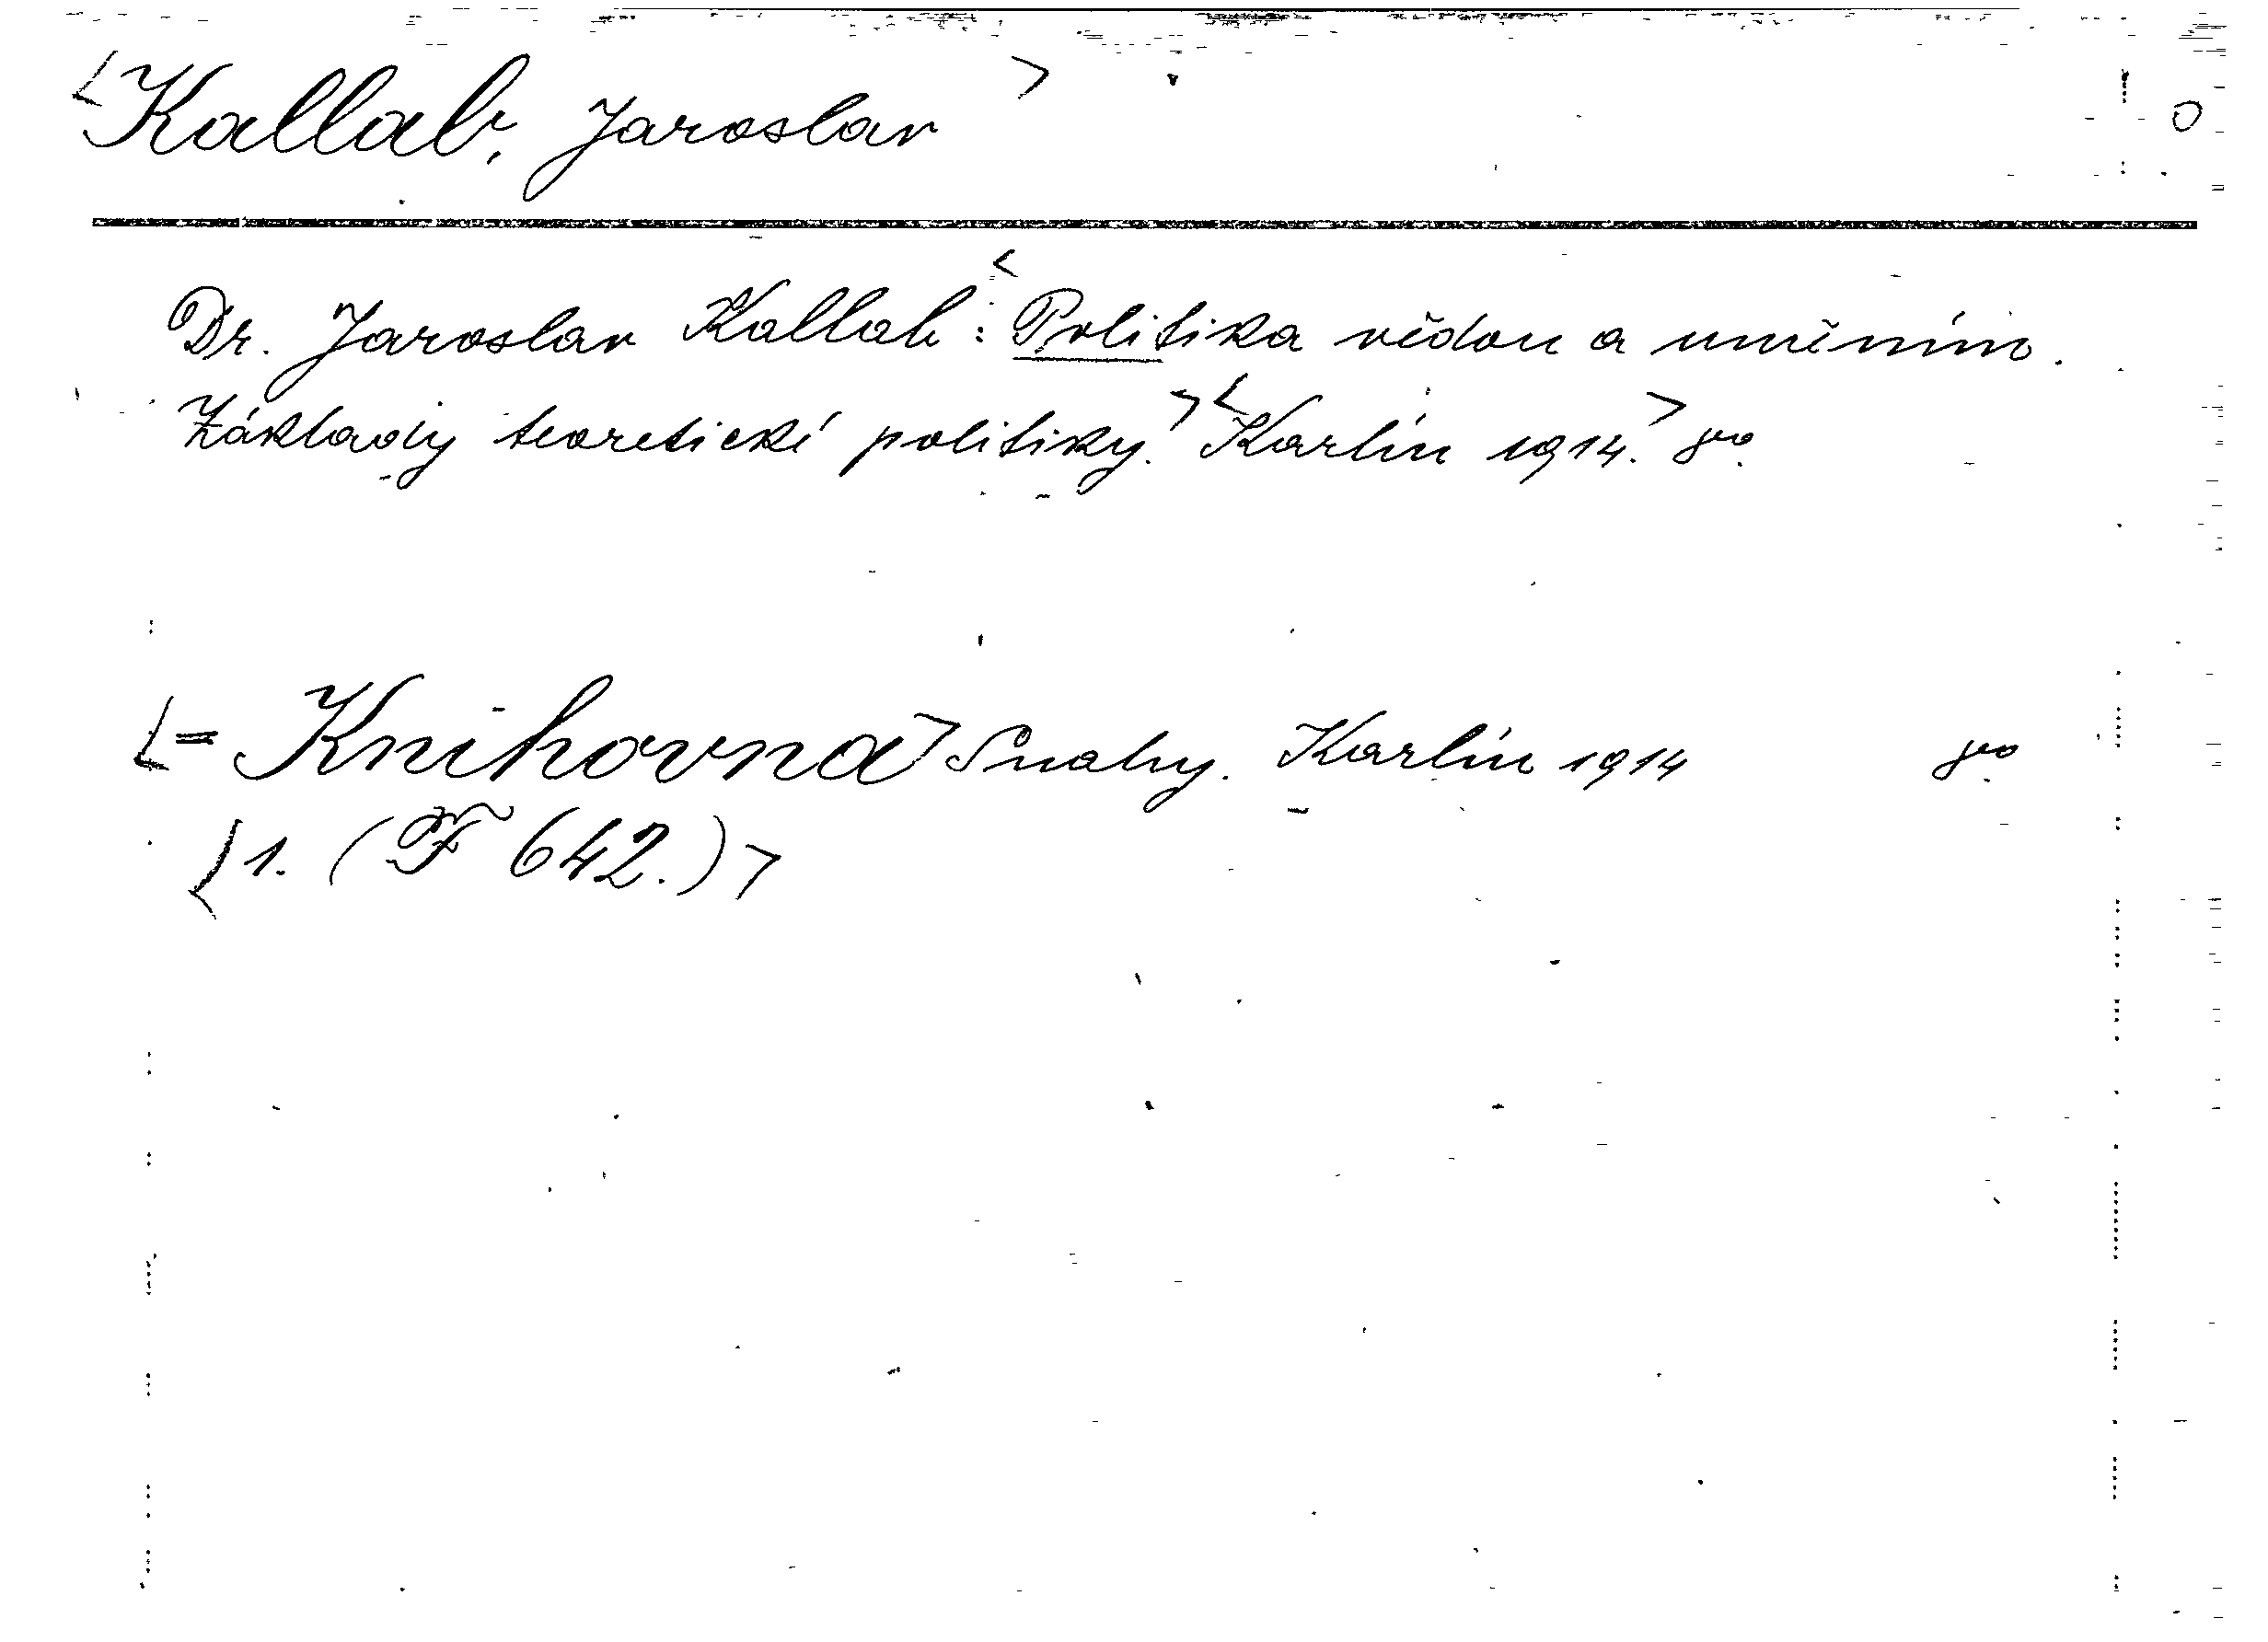 <Kallab, Jaroslav> O
Dr. Jaroslav Kallab: <Politika vědou a uměním.
Základy teoretické politiky.> <Karlín 1914.> 8º.
<= Knihovna> Snahy. Karlín 1914 8º
<1. (F 642.)>